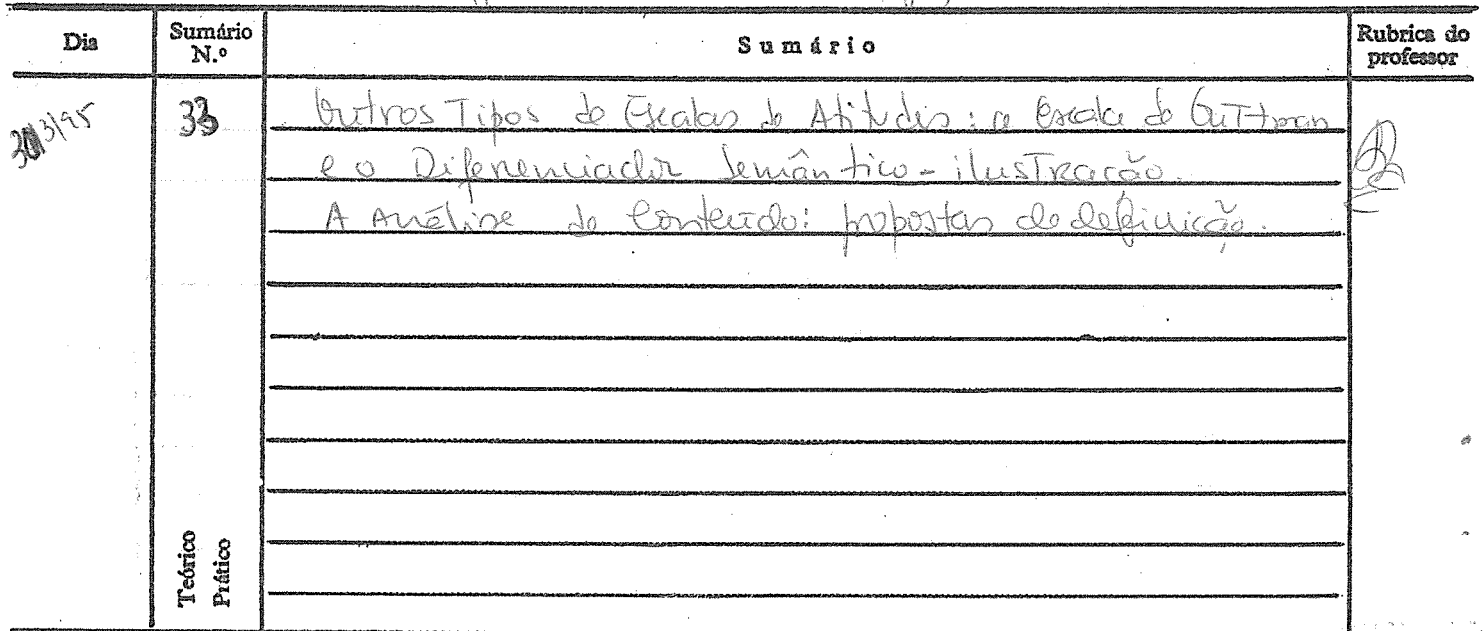 Dia
Sumário N.º
Sumário
Rubrica do professor
30/3/95
33
Outros Tipos de Escalas de Atitudes: a Escala de Guttman
e o Diferenciador Semântico - ilustração.
A Análise de Conteúdo: propostas de definição.
Teórico
Prático